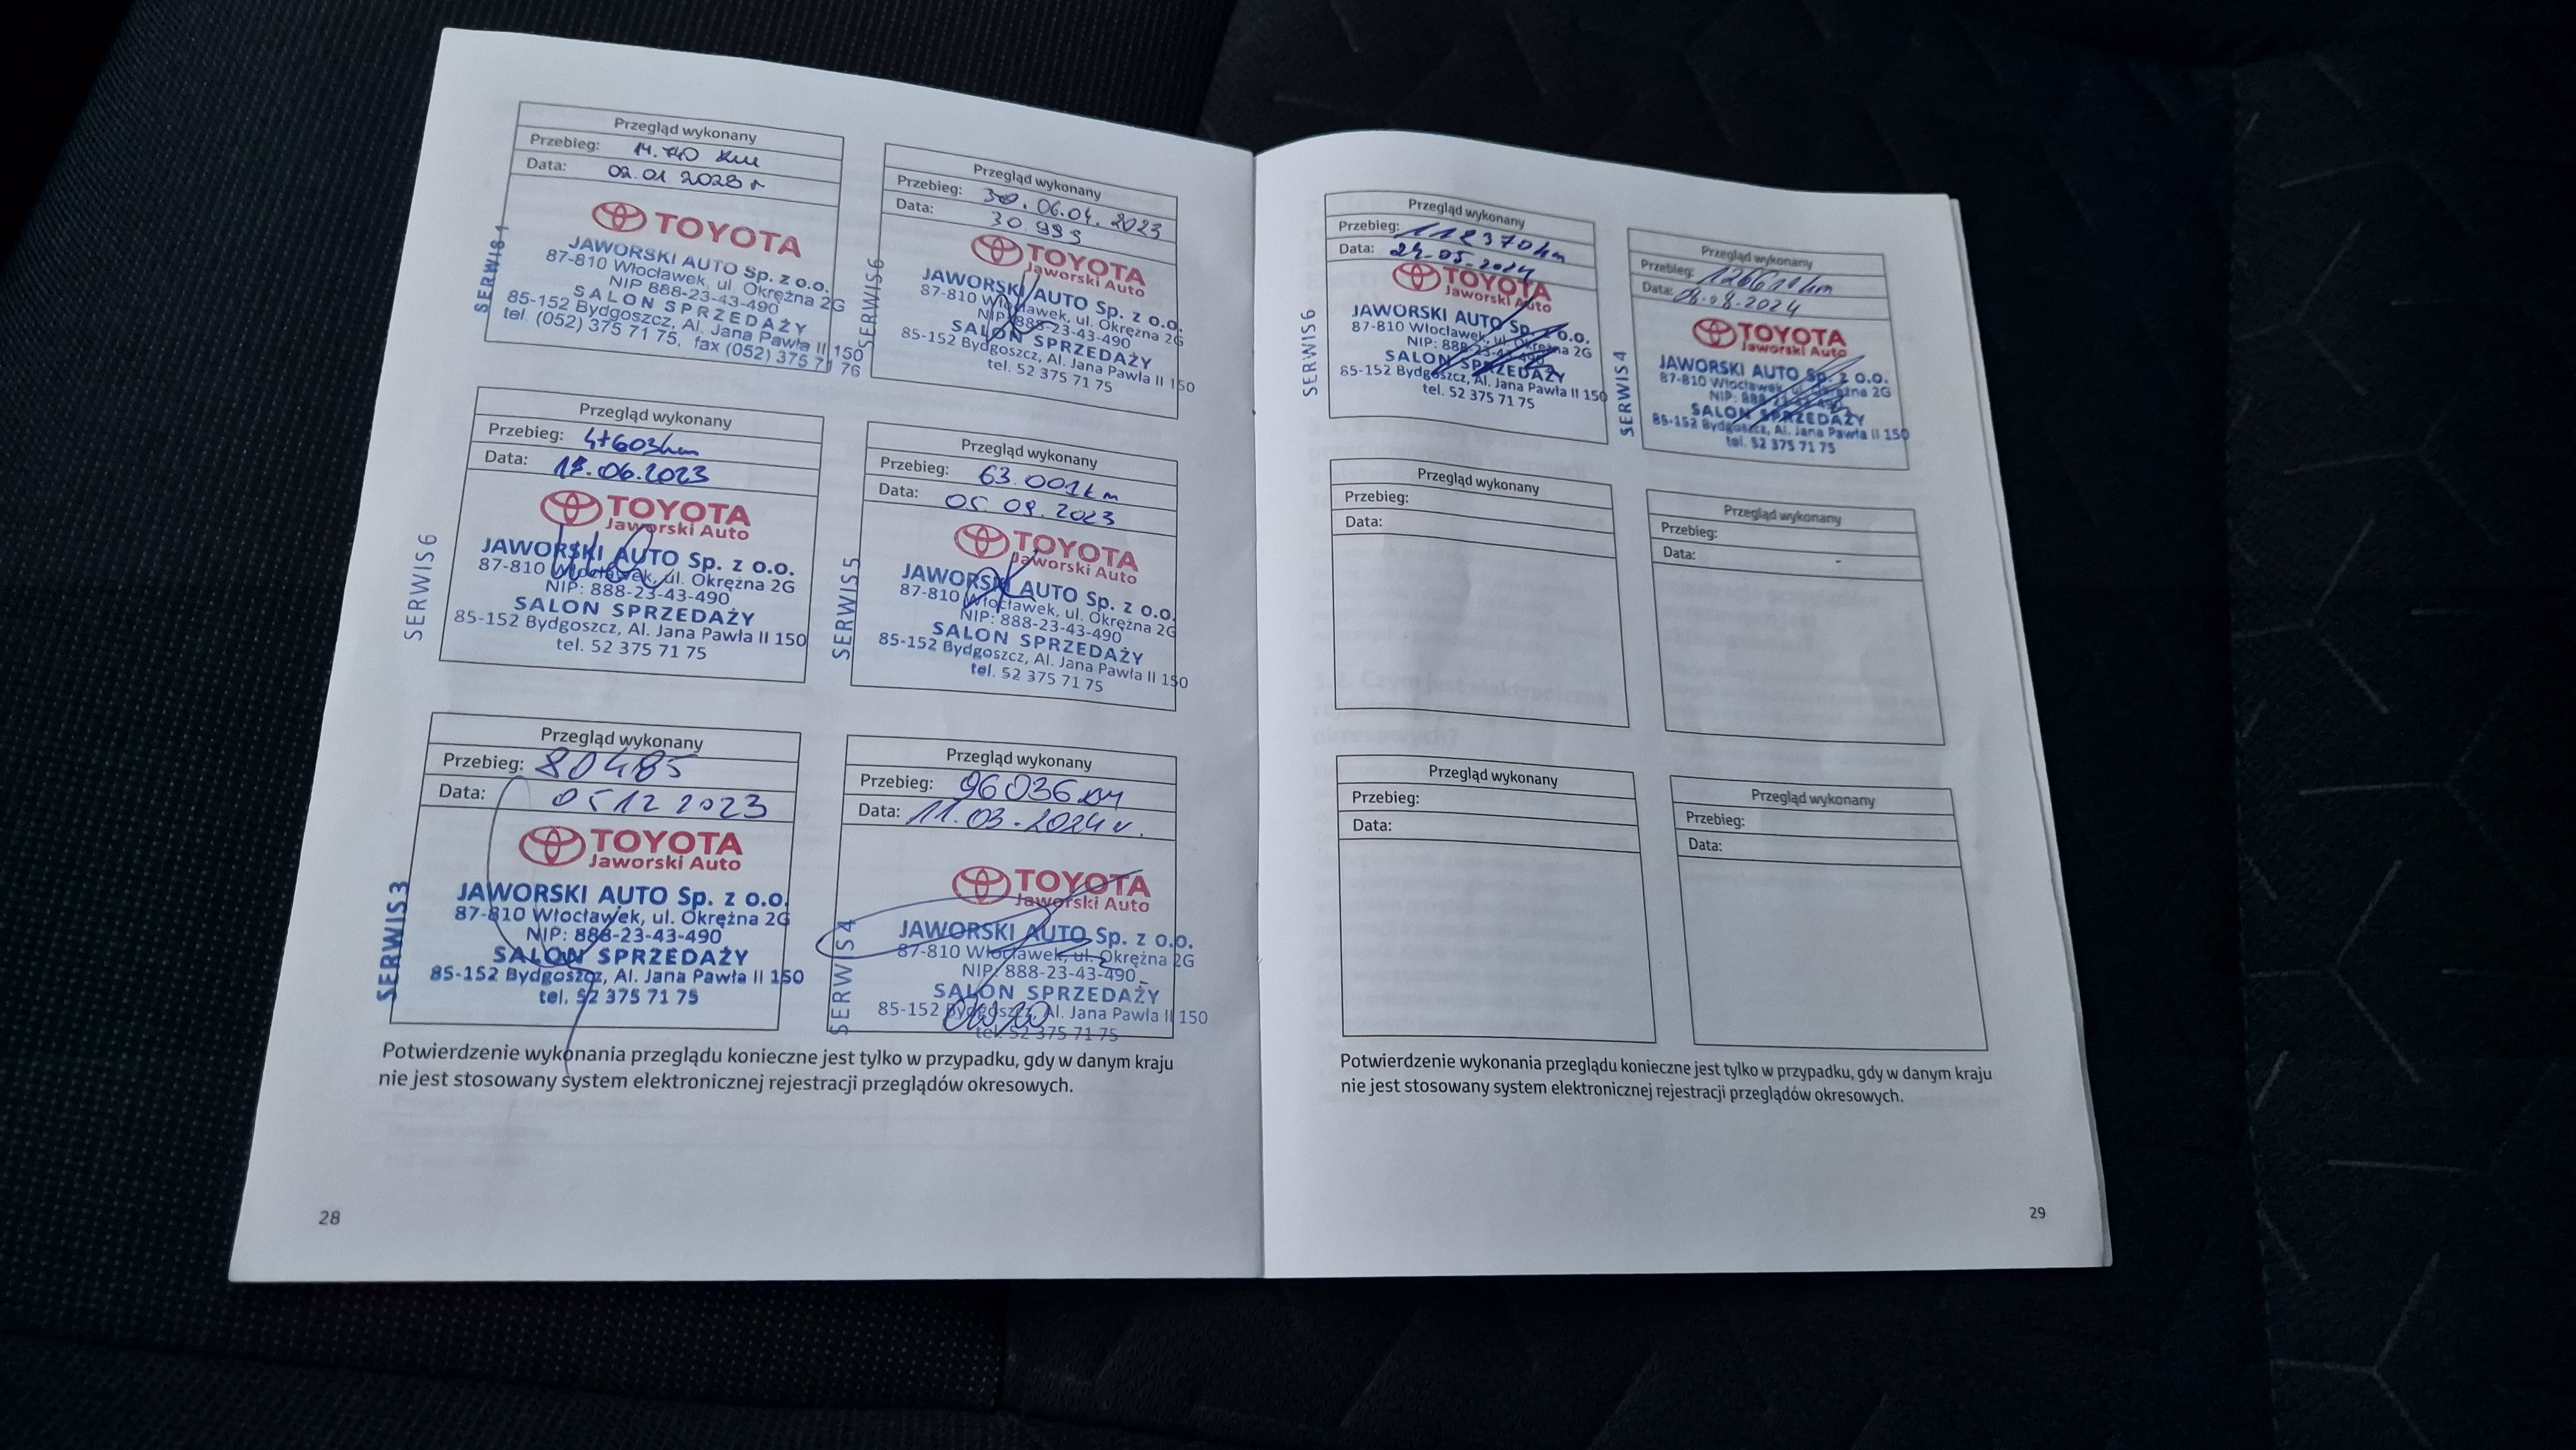 Przegląd wykonany
Przebieg: 14.740 km
Data: 02.01 2023 r
TOYOTA
JAWORSKI AUTO Sp. z o.o.
87-810 Włocławek, ul. Okrężna 2G
NIP 888-23-43-490
SALON SPRZEDAŻY
85-152 Bydgoszcz, Al. Jana Pawła II 150
tel. (052) 375 71 75, fax (052) 375 71 76
SERWIS 1
Przegląd wykonany
Przebieg: 06.04. 2023
Data: 30.999
TOYOTA
Jaworski Auto
JAWORSKI AUTO Sp. z o.o.
87-810 Włocławek, ul. Okrężna 2G
NIP: 888-23-43-490
SALON SPRZEDAŻY
85-152 Bydgoszcz, Al. Jana Pawła II 150
tel. 52 375 71 75
SERWIS 6
Przegląd wykonany
Przebieg: 47603km
Data: .06.2023
TOYOTA
Jaworski Auto
JAWORSKI AUTO Sp. z o.o.
87-810 Włocławek, ul. Okrężna 2G
NIP: 888-23-43-490
SALON SPRZEDAŻY
85-152 Bydgoszcz, Al. Jana Pawła II 150
tel. 52 375 71 75
SERWIS 6
Przegląd wykonany
Przebieg: 63.001km
Data: 05.09.2023
TOYOTA
Jaworski Auto
JAWORSKI AUTO Sp. z o.o.
87-810 Włocławek, ul. Okrężna 2G
NIP: 888-23-43-490
SALON SPRZEDAŻY
85-152 Bydgoszcz, Al. Jana Pawła II 150
tel. 52 375 71 75
SERWIS 5
Przegląd wykonany
Przebieg: 80485
Data: 05 12 2023
TOYOTA
Jaworski Auto
JAWORSKI AUTO Sp. z o.o.
87-810 Włocławek, ul. Okrężna 2G
NIP: 888-23-43-490
SALON SPRZEDAŻY
85-152 Bydgoszcz, Al. Jana Pawła II 150
tel. 52 375 71 75
SERWIS 3
Przegląd wykonany
Przebieg: 96036 km
Data: 11.03.2024 r.
TOYOTA
Jaworski Auto
JAWORSKI AUTO Sp. z o.o.
87-810 Włocławek, ul. Okrężna 2G
NIP: 888-23-43-490
SALON SPRZEDAŻY
85-152 Bydgoszcz, Al. Jana Pawła II 150
tel. 52 375 71 75
SERWIS 4
Potwierdzenie wykonania przeglądu konieczne jest tylko w przypadku, gdy w danym kraju
nie jest stosowany system elektronicznej rejestracji przeglądów okresowych.
28
Przegląd wykonany
Przebieg: 112370km
Data: 24-05-2024
TOYOTA
Jaworski Auto
JAWORSKI AUTO Sp. z o.o.
87-810 Włocławek, ul. Okrężna 2G
NIP: 888-23-43-490
SALON SPRZEDAŻY
85-152 Bydgoszcz, Al. Jana Pawła II 150
tel. 52 375 71 75
SERWIS 6
Przegląd wykonany
Przebieg: 126611km
Data: 08.2024
TOYOTA
Jaworski Auto
JAWORSKI AUTO Sp. z o.o.
87-810 Włocławek, ul. Okrężna 2G
NIP: 888-23-43-490
SALON SPRZEDAŻY
85-152 Bydgoszcz, Al. Jana Pawła II 150
tel. 52 375 71 75
SERWIS 4
Przegląd wykonany
Przebieg:
Data:
Przegląd wykonany
Przebieg:
Data:
Przegląd wykonany
Przebieg:
Data:
Przegląd wykonany
Przebieg:
Data:
Potwierdzenie wykonania przeglądu konieczne jest tylko w przypadku, gdy w danym kraju
nie jest stosowany system elektronicznej rejestracji przeglądów okresowych.
29